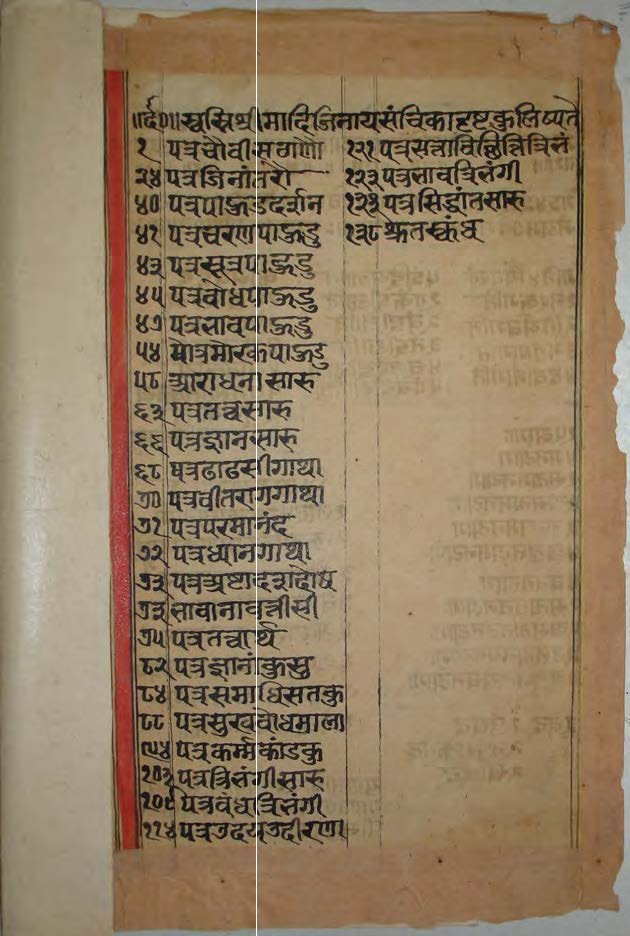 ॥र्द०॥ स्वस्तिश्रीमादिजिनायसंचिकादृष्टकुलिष्पते
१ पत्रचौवीसठाणा
२४ पत्रजिनांतरा
४० पत्रपाऊडदर्शन
४१ पत्रचरणपाऊडु
४३ पत्रसूत्रपाऊडु
४५ पत्रबोधपाऊडु
४७ पत्रभावपाऊडु
५४ पात्रमोरकपाऊडु
५८ आराधनासारु
६३ पत्रतत्वसारु
६६ पत्रज्ञानसारु
६८ पत्रढाढसीगाथा
७० पत्रवीतरागगाथा
७१ पत्रपरमानंद
७२ पत्रध्यानगाथा
७३ पत्रअष्टादशदोष
७३ भावानाबत्रीसी
७५ पत्रतत्वार्थ
८२ पत्रज्ञानांकुसु
८४ पत्रसमाधिसतकु
८८ पत्रसुखबोधमाला
९४ पत्रकर्म्मकांडकु
१०३ पत्रत्रिभंगीसारु
१०८ पत्रबंधत्रिभंगी
११४ पत्रउदयउदीरणा
१२१ पत्रसत्ता
१२३ पत्रभावत्रिभंगी
१२३ पत्रसिद्धांतसारु
१३८ श्रुतस्कंध